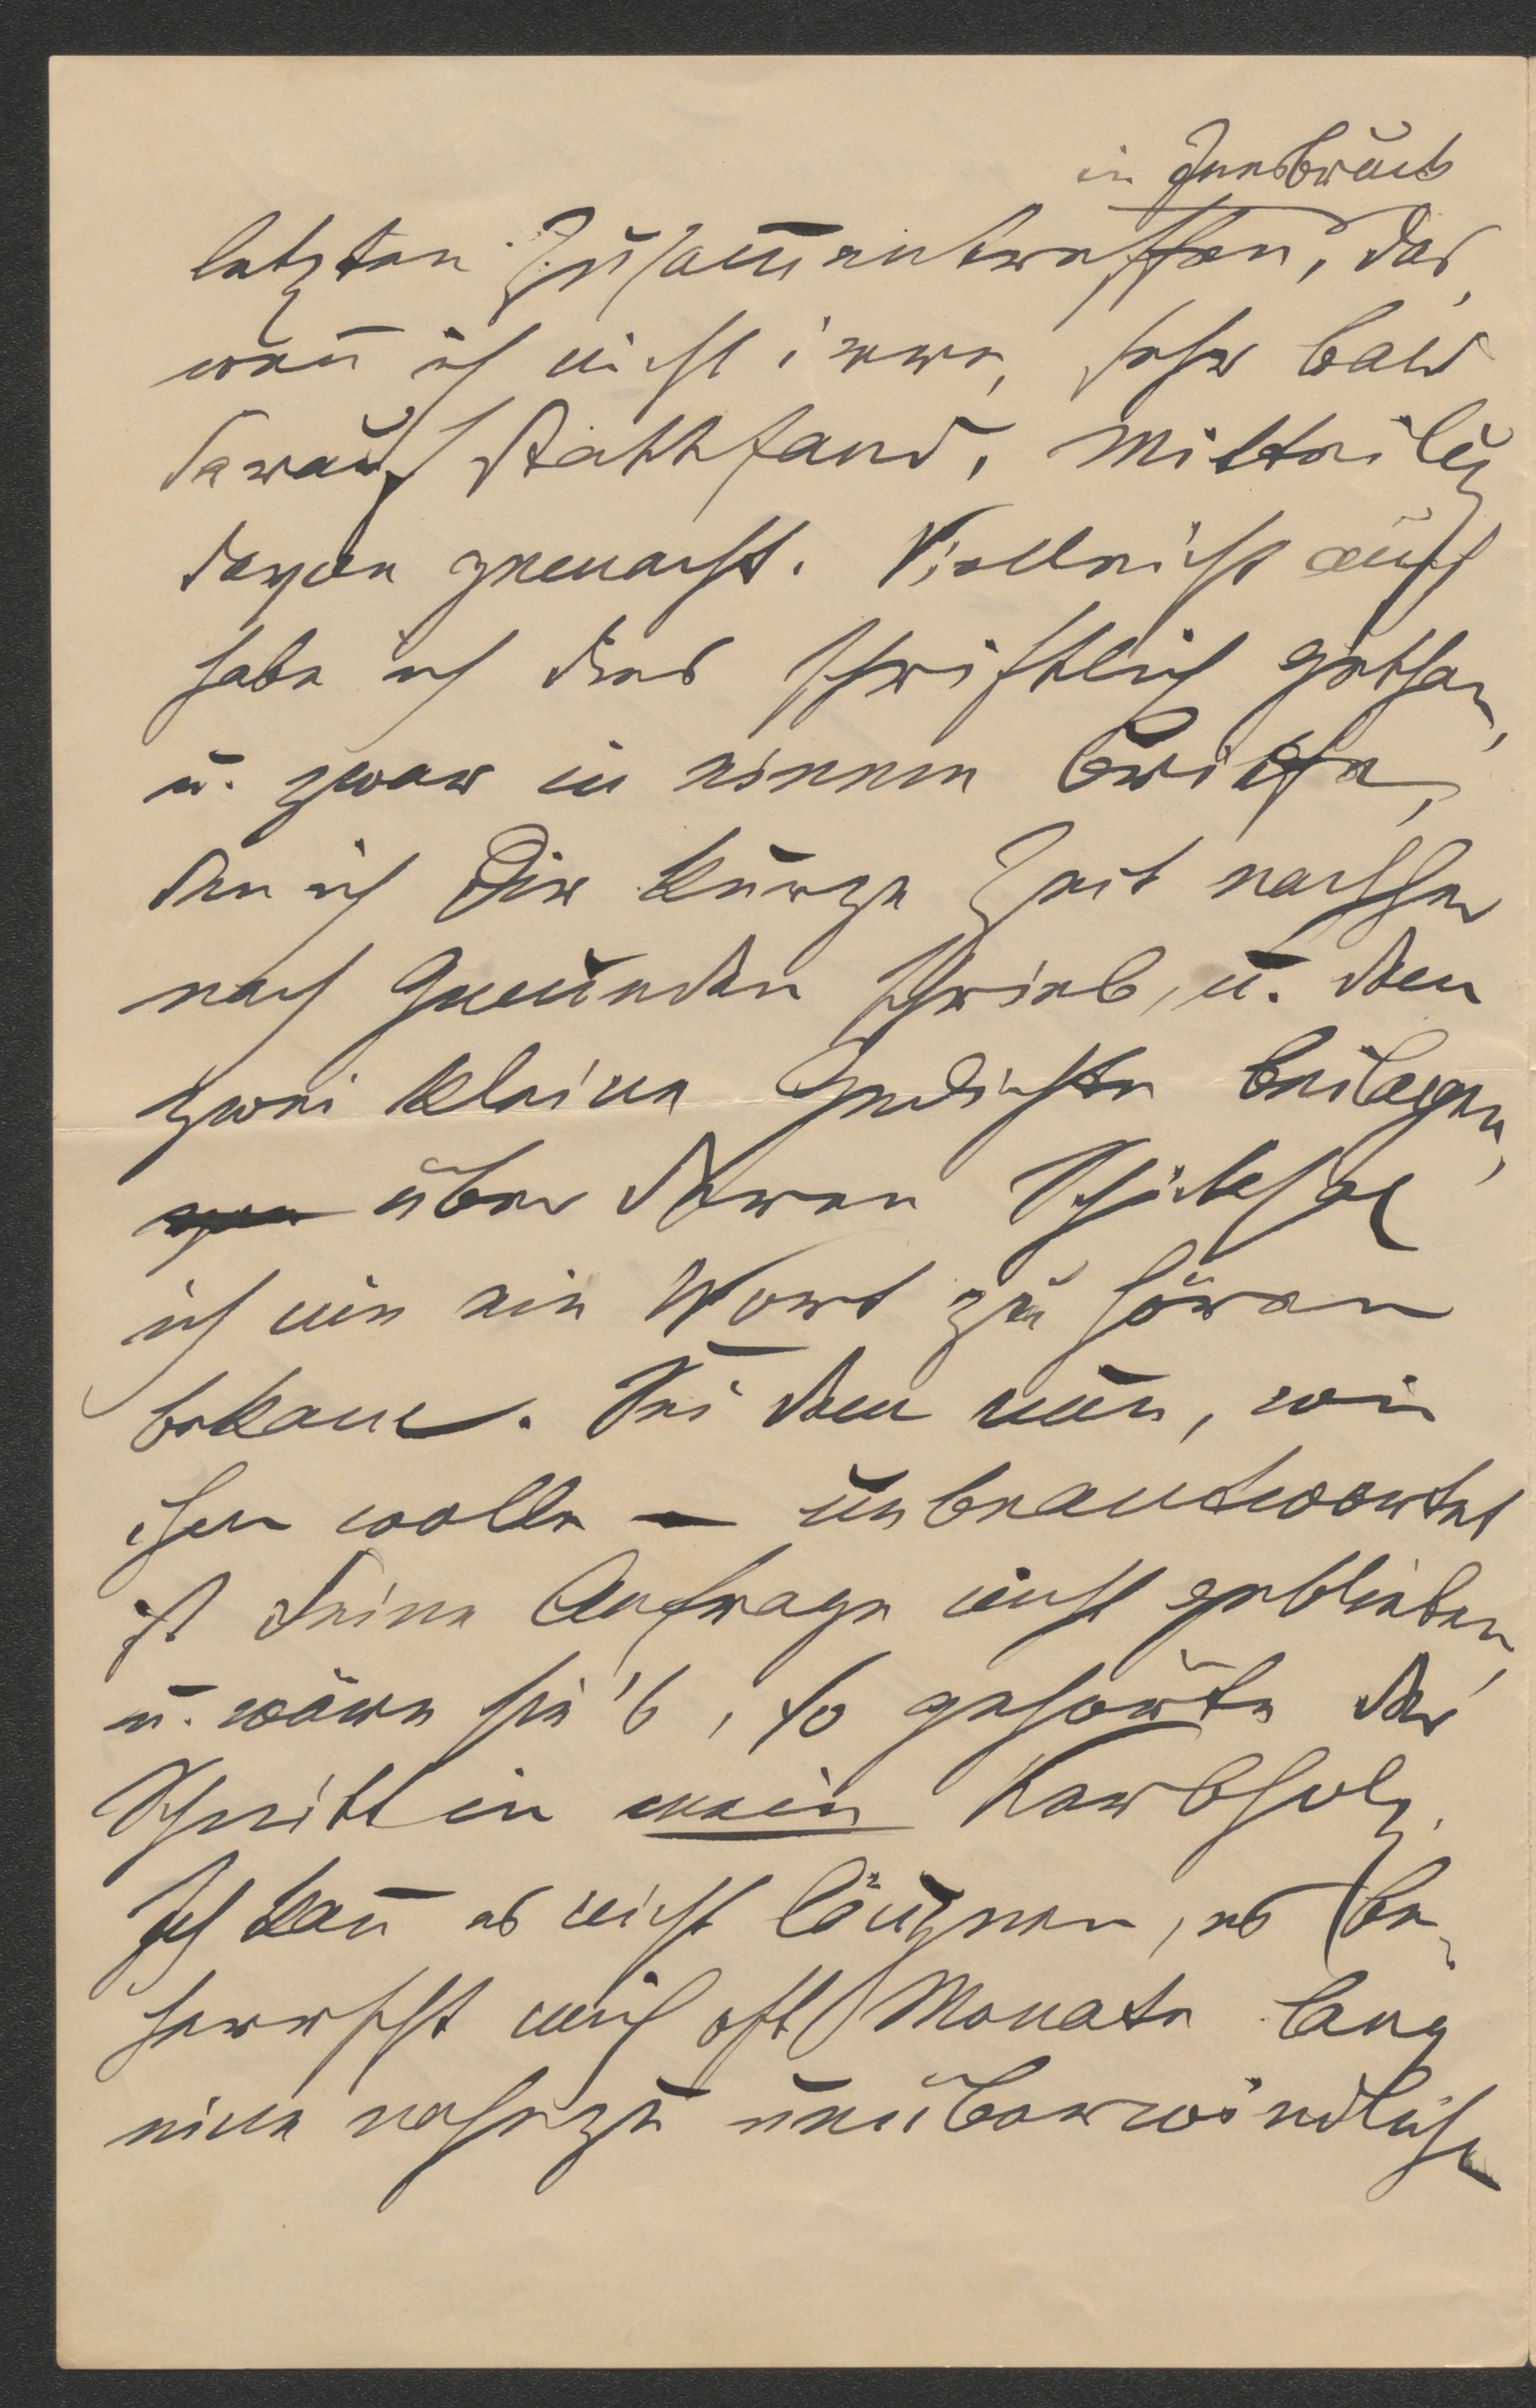 in Innsbruck
letzten Zusam̅entreffen, das,
wen̅ ich nicht irre, sehr bald
darauf stattfand, Mitteilg
davon gemacht. Vielleicht auch
habe ich dies schriftlich gethan,
u. zwar in einem Briefe,
den ich Dir kurze Zeit nachher
nach Gmunden schrieb, u. dem
zwei kleine Gedichte beilagen,
über deren Schicksal
ich nie ein Wort zu hören
bekam. Sei dem nun, wie
ihm wolle – unbeantwortet
ist Deine Anfrage nicht geblieben,
u. wäre sie's, so gehörte der
Schnitt in mein Kerbholz.
Ich kan̅ es nicht läugnen, es be-
herrscht mich oft Monate lang
eine nahezu unüberwindliche